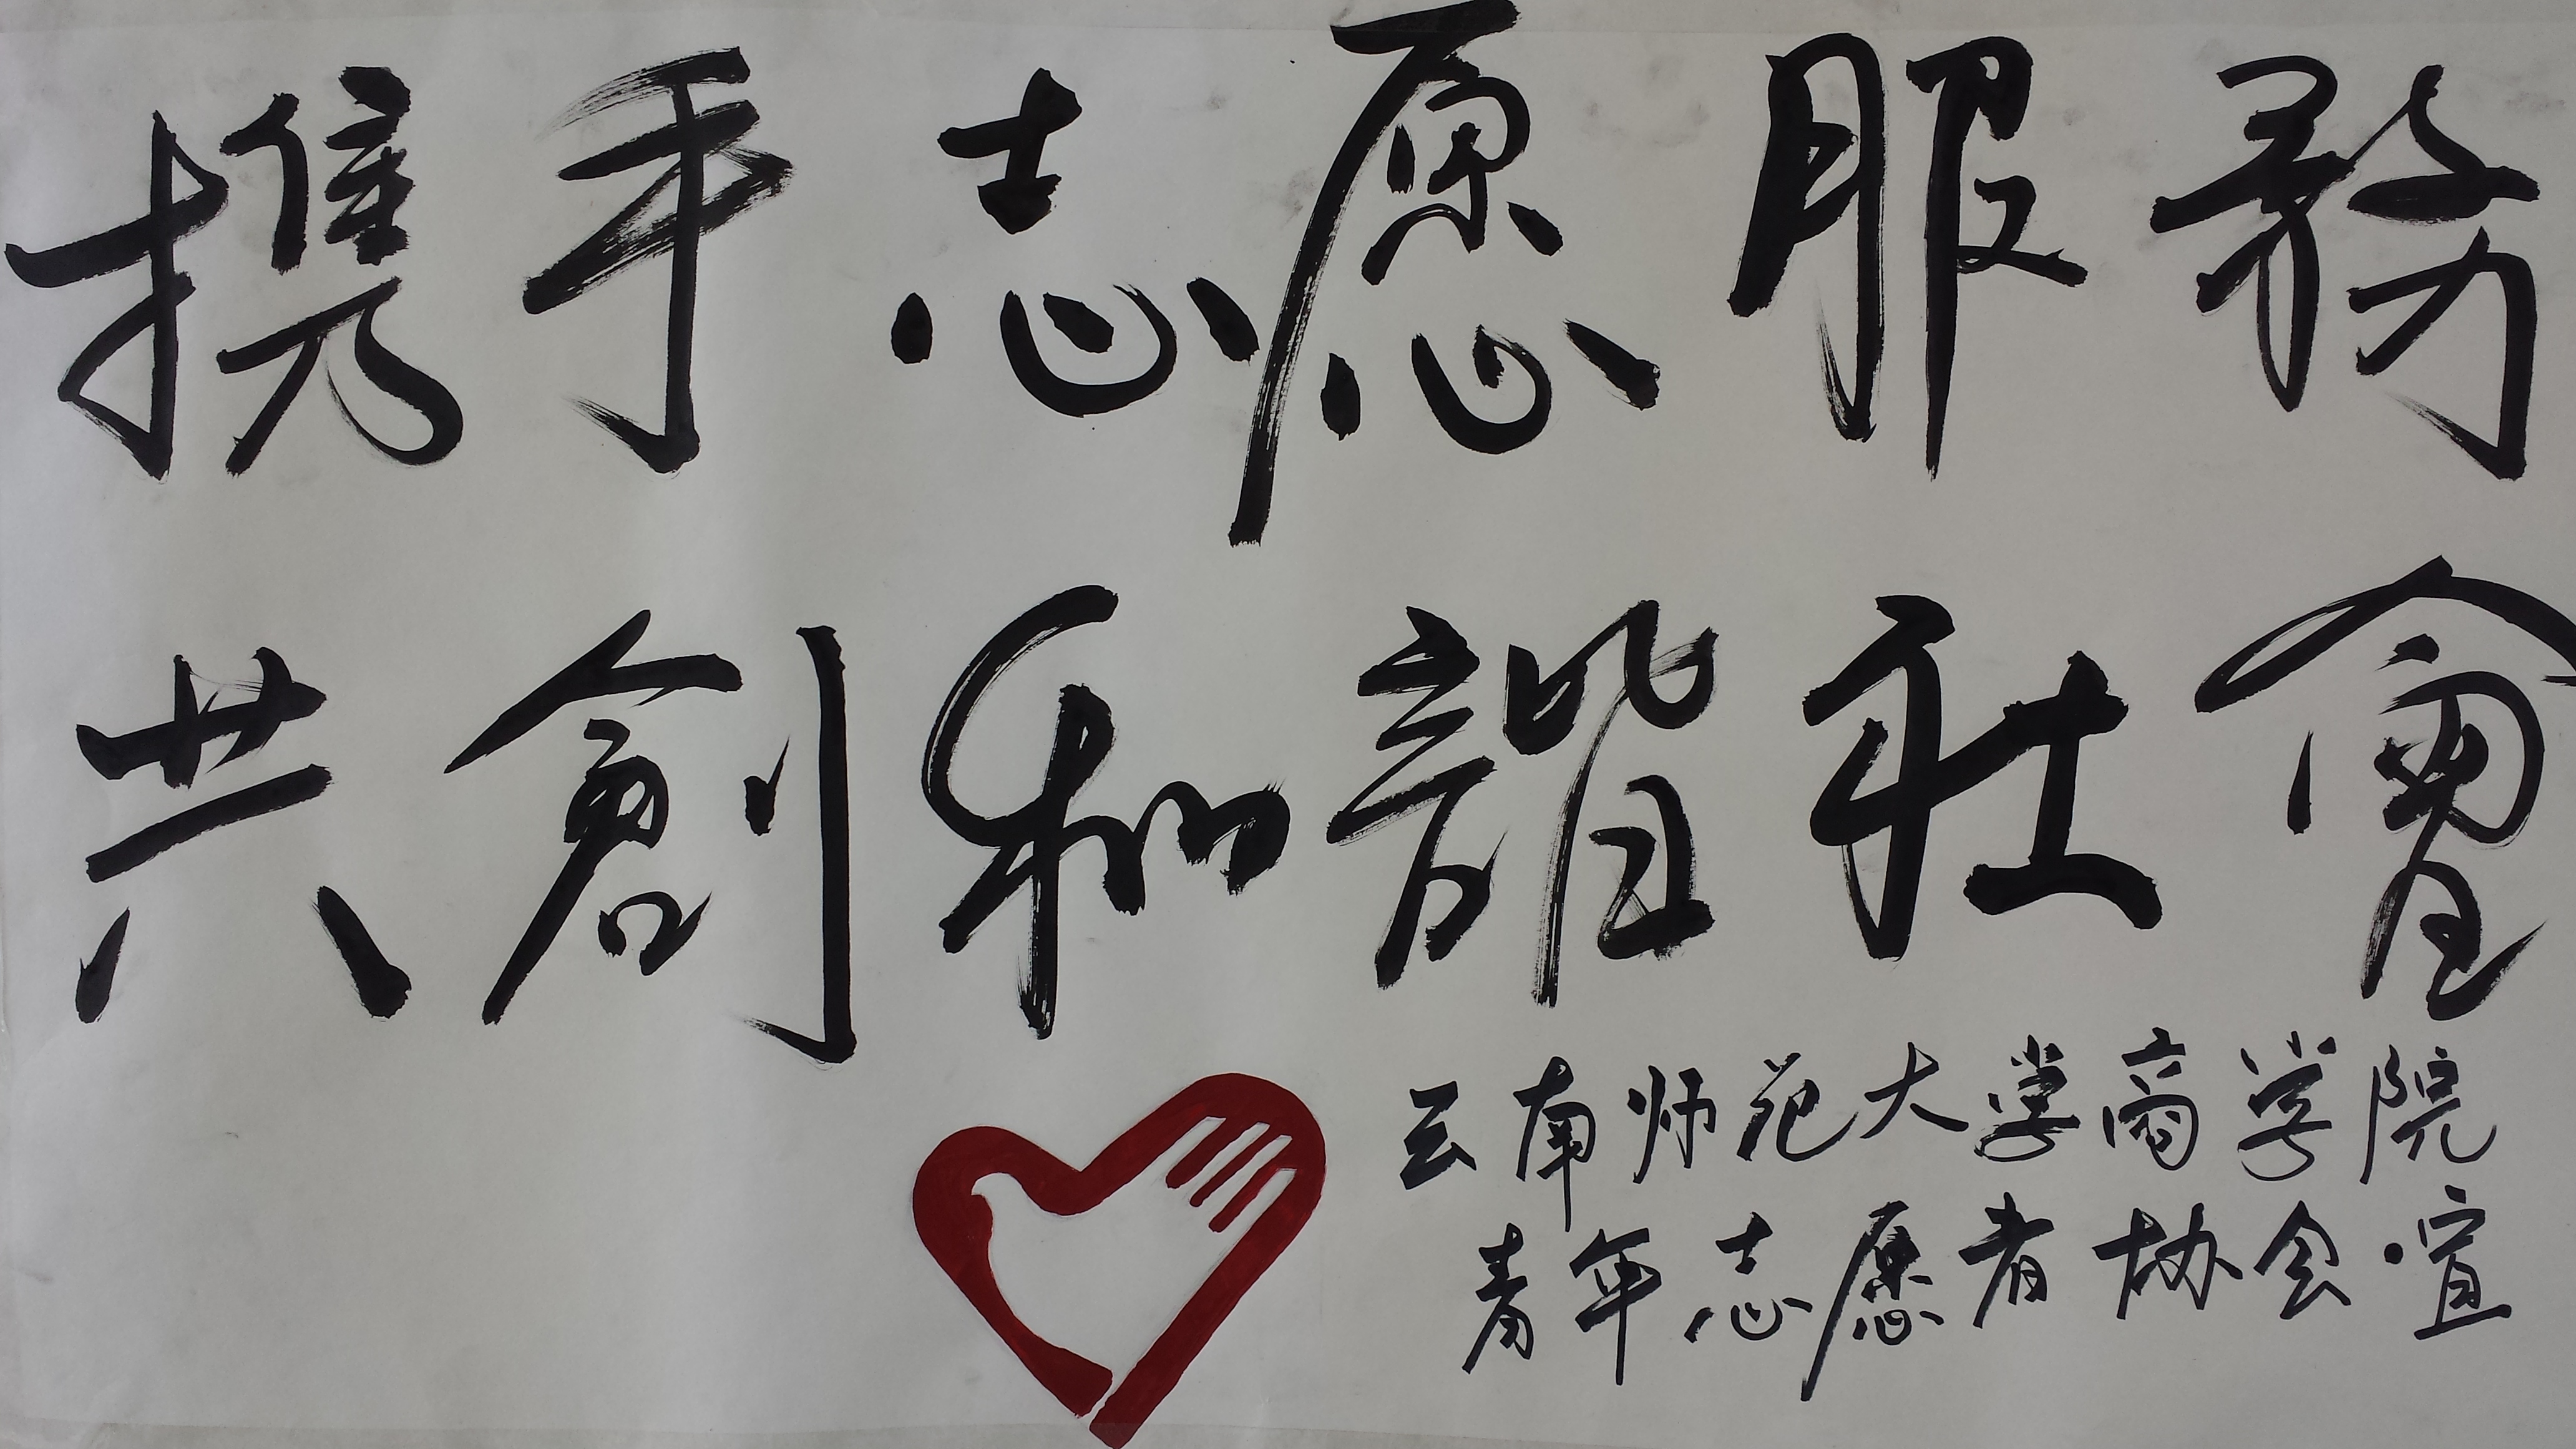 携手志愿服務
共創和諧社會
云南师范大学商学院
青年志愿者协会·宣